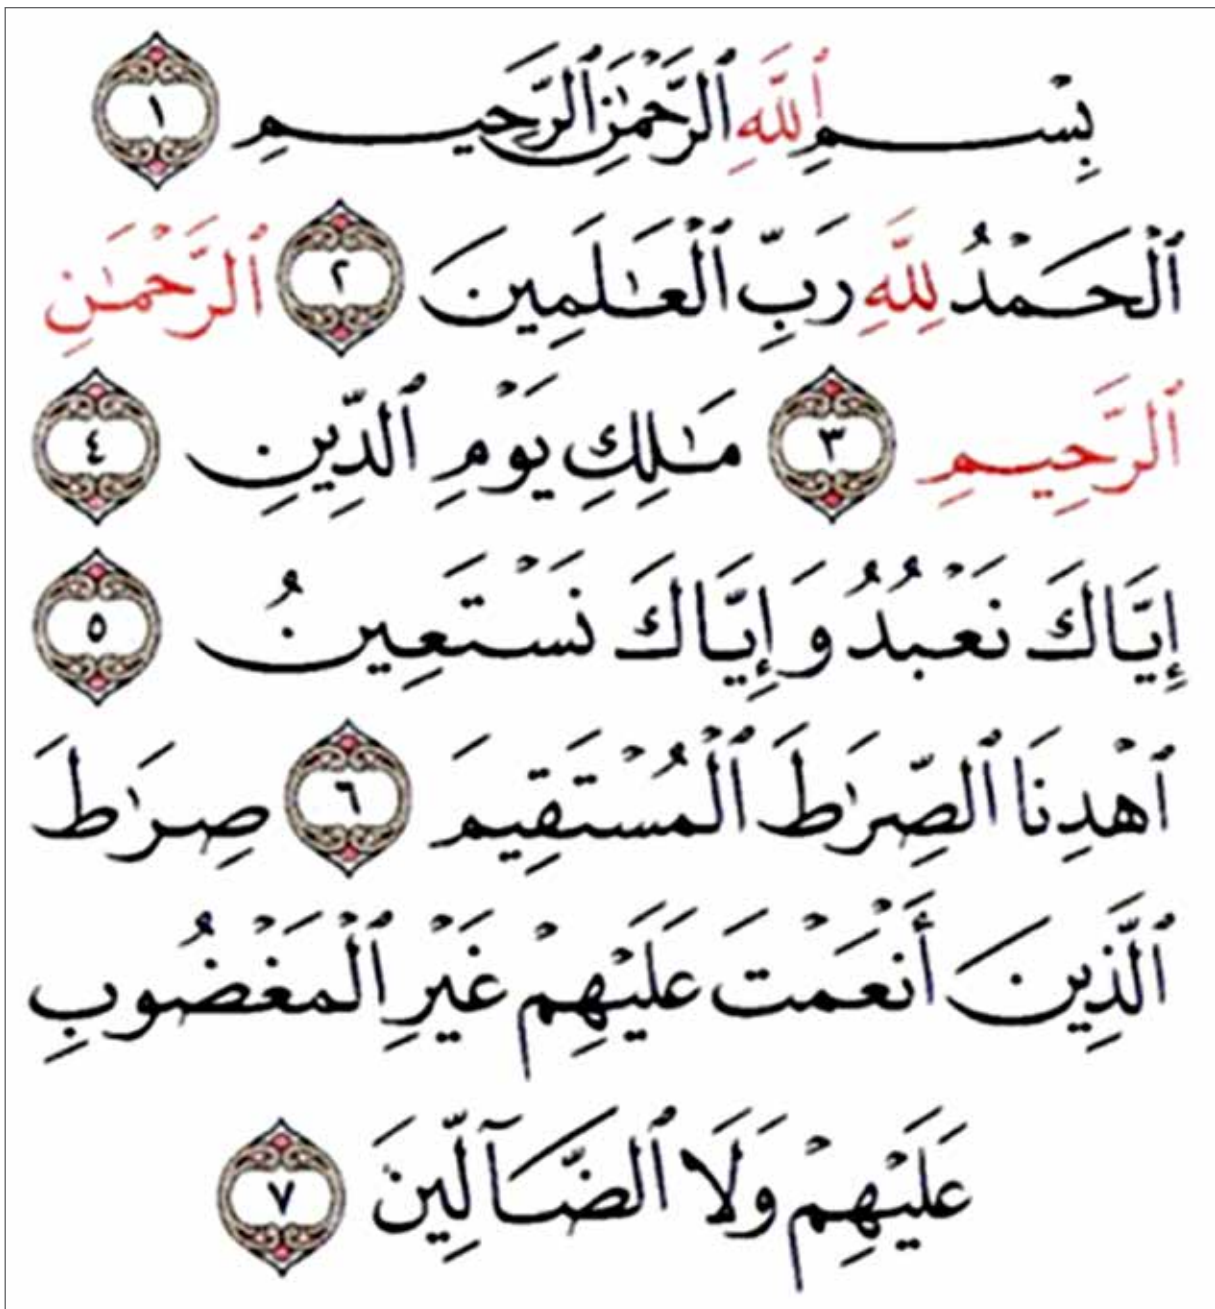 بِسْمِ ٱللَّهِ ٱلرَّحْمَٰنِ ٱلرَّحِيمِ ١
ٱلْحَمْدُ لِلَّهِ رَبِّ ٱلْعَـٰلَمِينَ ٢ ٱلرَّحْمَـٰنِ
ٱلرَّحِيمِ ٣ مَـٰلِكِ يَوْمِ ٱلدِّينِ ٤
إِيَّاكَ نَعْبُدُ وَإِيَّاكَ نَسْتَعِينُ ٥
ٱهْدِنَا ٱلصِّرَٰطَ ٱلْمُسْتَقِيمَ ٦ صِرَٰطَ
ٱلَّذِينَ أَنْعَمْتَ عَلَيْهِمْ غَيْرِ ٱلْمَغْضُوبِ
عَلَيْهِمْ وَلَا ٱلضَّآلِّينَ ٧